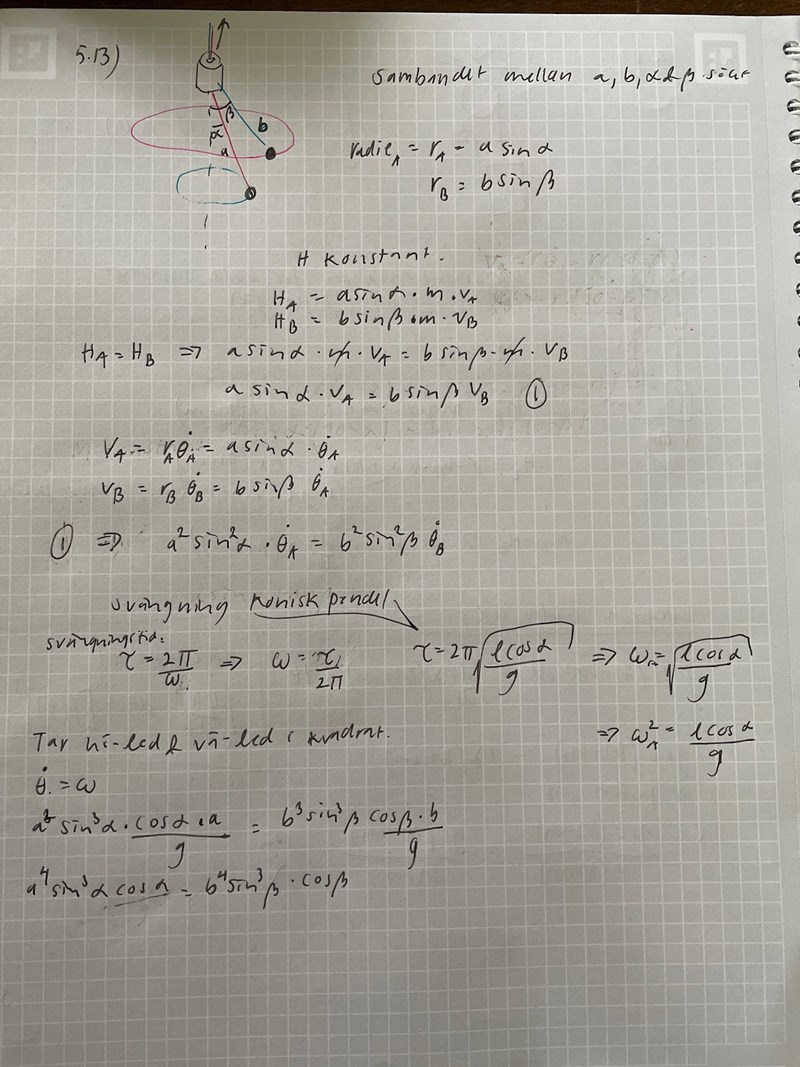 5.13)
Sambandet mellan a, b, α & β sökt
β
α
b
a
radie_A = r_A = a sin α
r_B = b sin β
H konstant.
H_A = a sin α · m · v_A
H_B = b sin β · m · v_B
H_A = H_B ⇒ a sin α · m · v_A = b sin β · m · v_B
a sin α · v_A = b sin β v_B ①
v_A = r_A θ̇_A = a sin α · θ̇_A
v_B = r_B θ̇_B = b sin β θ̇_A
① ⇒ a² sin² α · θ̇_A = b² sin² β θ̇_B
svängning konisk pendel
svängningstid:
τ = 2π/ω ⇒ ω = τ/2π τ = 2π √(l cos α / g) ⇒ ω_A = √(l cos α / g)
Tar hö-led & vä-led i kvadrat. ⇒ ω_A² = l cos α / g
θ̇ = ω
a³ sin³ α · cos α · a / g = b³ sin³ β cos β · b / g
a⁴ sin³ α cos α = b⁴ sin³ β · cos β